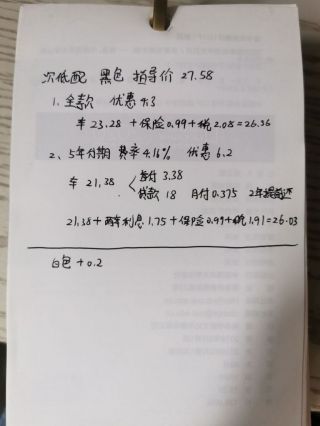 次低配 黑色 指导价 27.58
1. 全款 优惠 4.3
车 23.28 + 保险 0.99 + 税 2.08 = 26.36
2、5年分期 费率 4.16% 优惠 6.2
车 21.38 首付 3.38
贷款 18 月付 0.375 2年提前还
21.38 + 两年利息 1.75 + 保险 0.99 + 税 1.91 = 26.03
白色 + 0.2